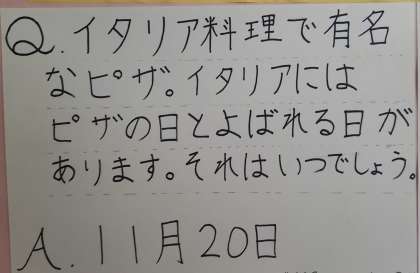 Q.イタリア料理で有名
なピザ。イタリアには
ピザの日とよばれる日が
あります。それはいつでしょう。
A.11月20日